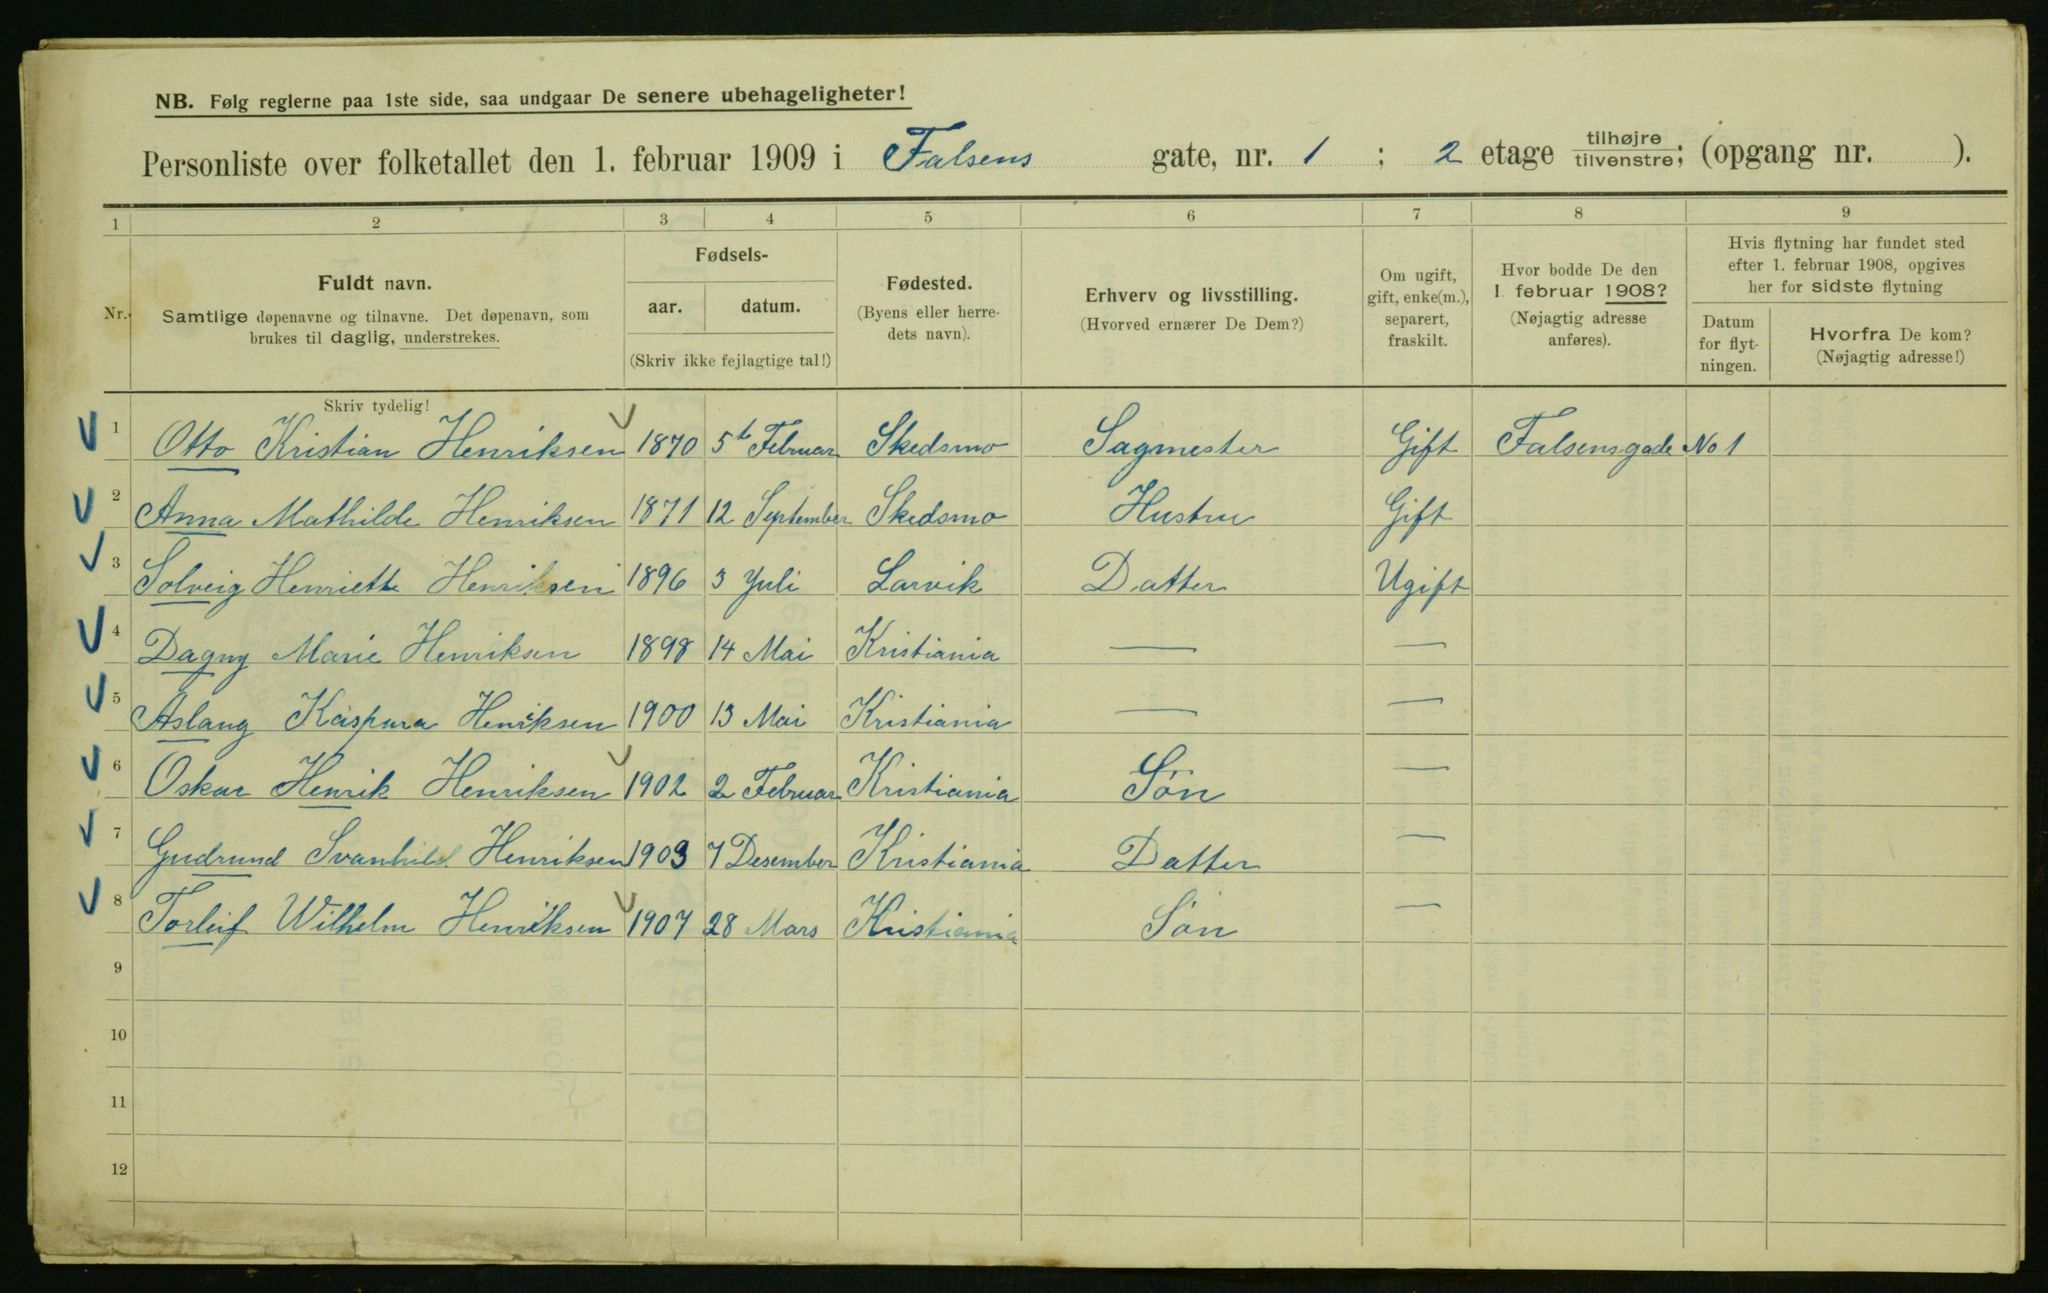 NB. Følg reglerne paa 1ste side, saa undgaar De senere ubehageligheter!
Personliste over folketallet den 1. februar 1909 i Falsens gate, nr. 1 ; 2 etage tilhøjre tilvenstre; (opgang nr. ).
1 2 3 4 5 6 7 8 9
Nr.
Fuldt navn.
Samtlige døpenavne og tilnavne. Det døpenavn, som
brukes til daglig, understrekes.
Fødsels-
aar. datum.
(Skriv ikke fejlagtige tal!)
Fødested.
(Byens eller herre-
dets navn).
Erhverv og livsstilling.
(Hvorved ernærer De Dem?)
Om ugift,
gift, enke(m.),
separert,
fraskilt.
Hvor bodde De den
1. februar 1908?
(Nøjagtig adresse
anføres).
Hvis flytning har fundet sted
efter 1. februar 1908, opgives
her for sidste flytning
Datum
for flyt-
ningen.
Hvorfra De kom?
(Nøjagtig adresse!)
Skriv tydelig!
1 Otto Kristian Henriksen 1870 5t Februar Skedsmo Sagmester Gift Falsensgade No 1
2 Anna Mathilde Henriksen 1871 12 September Skedsmo Hustru Gift
3 Solveig Henriette Henriksen 1896 3 Yuli Larvik Datter Ugift
4 Dagny Marie Henriksen 1898 14 Mai Kristiania — —
5 Aslaug Kaspara Henriksen 1900 13 Mai Kristiania — —
6 Oskar Henrik Henriksen 1902 2 Februar Kristiania Søn —
7 Gudrund Svanhild Henriksen 1903 7 Desember Kristiania Datter —
8 Torleif Wilhelm Henriksen 1907 28 Mars Kristiania Søn —
9
10
11
12